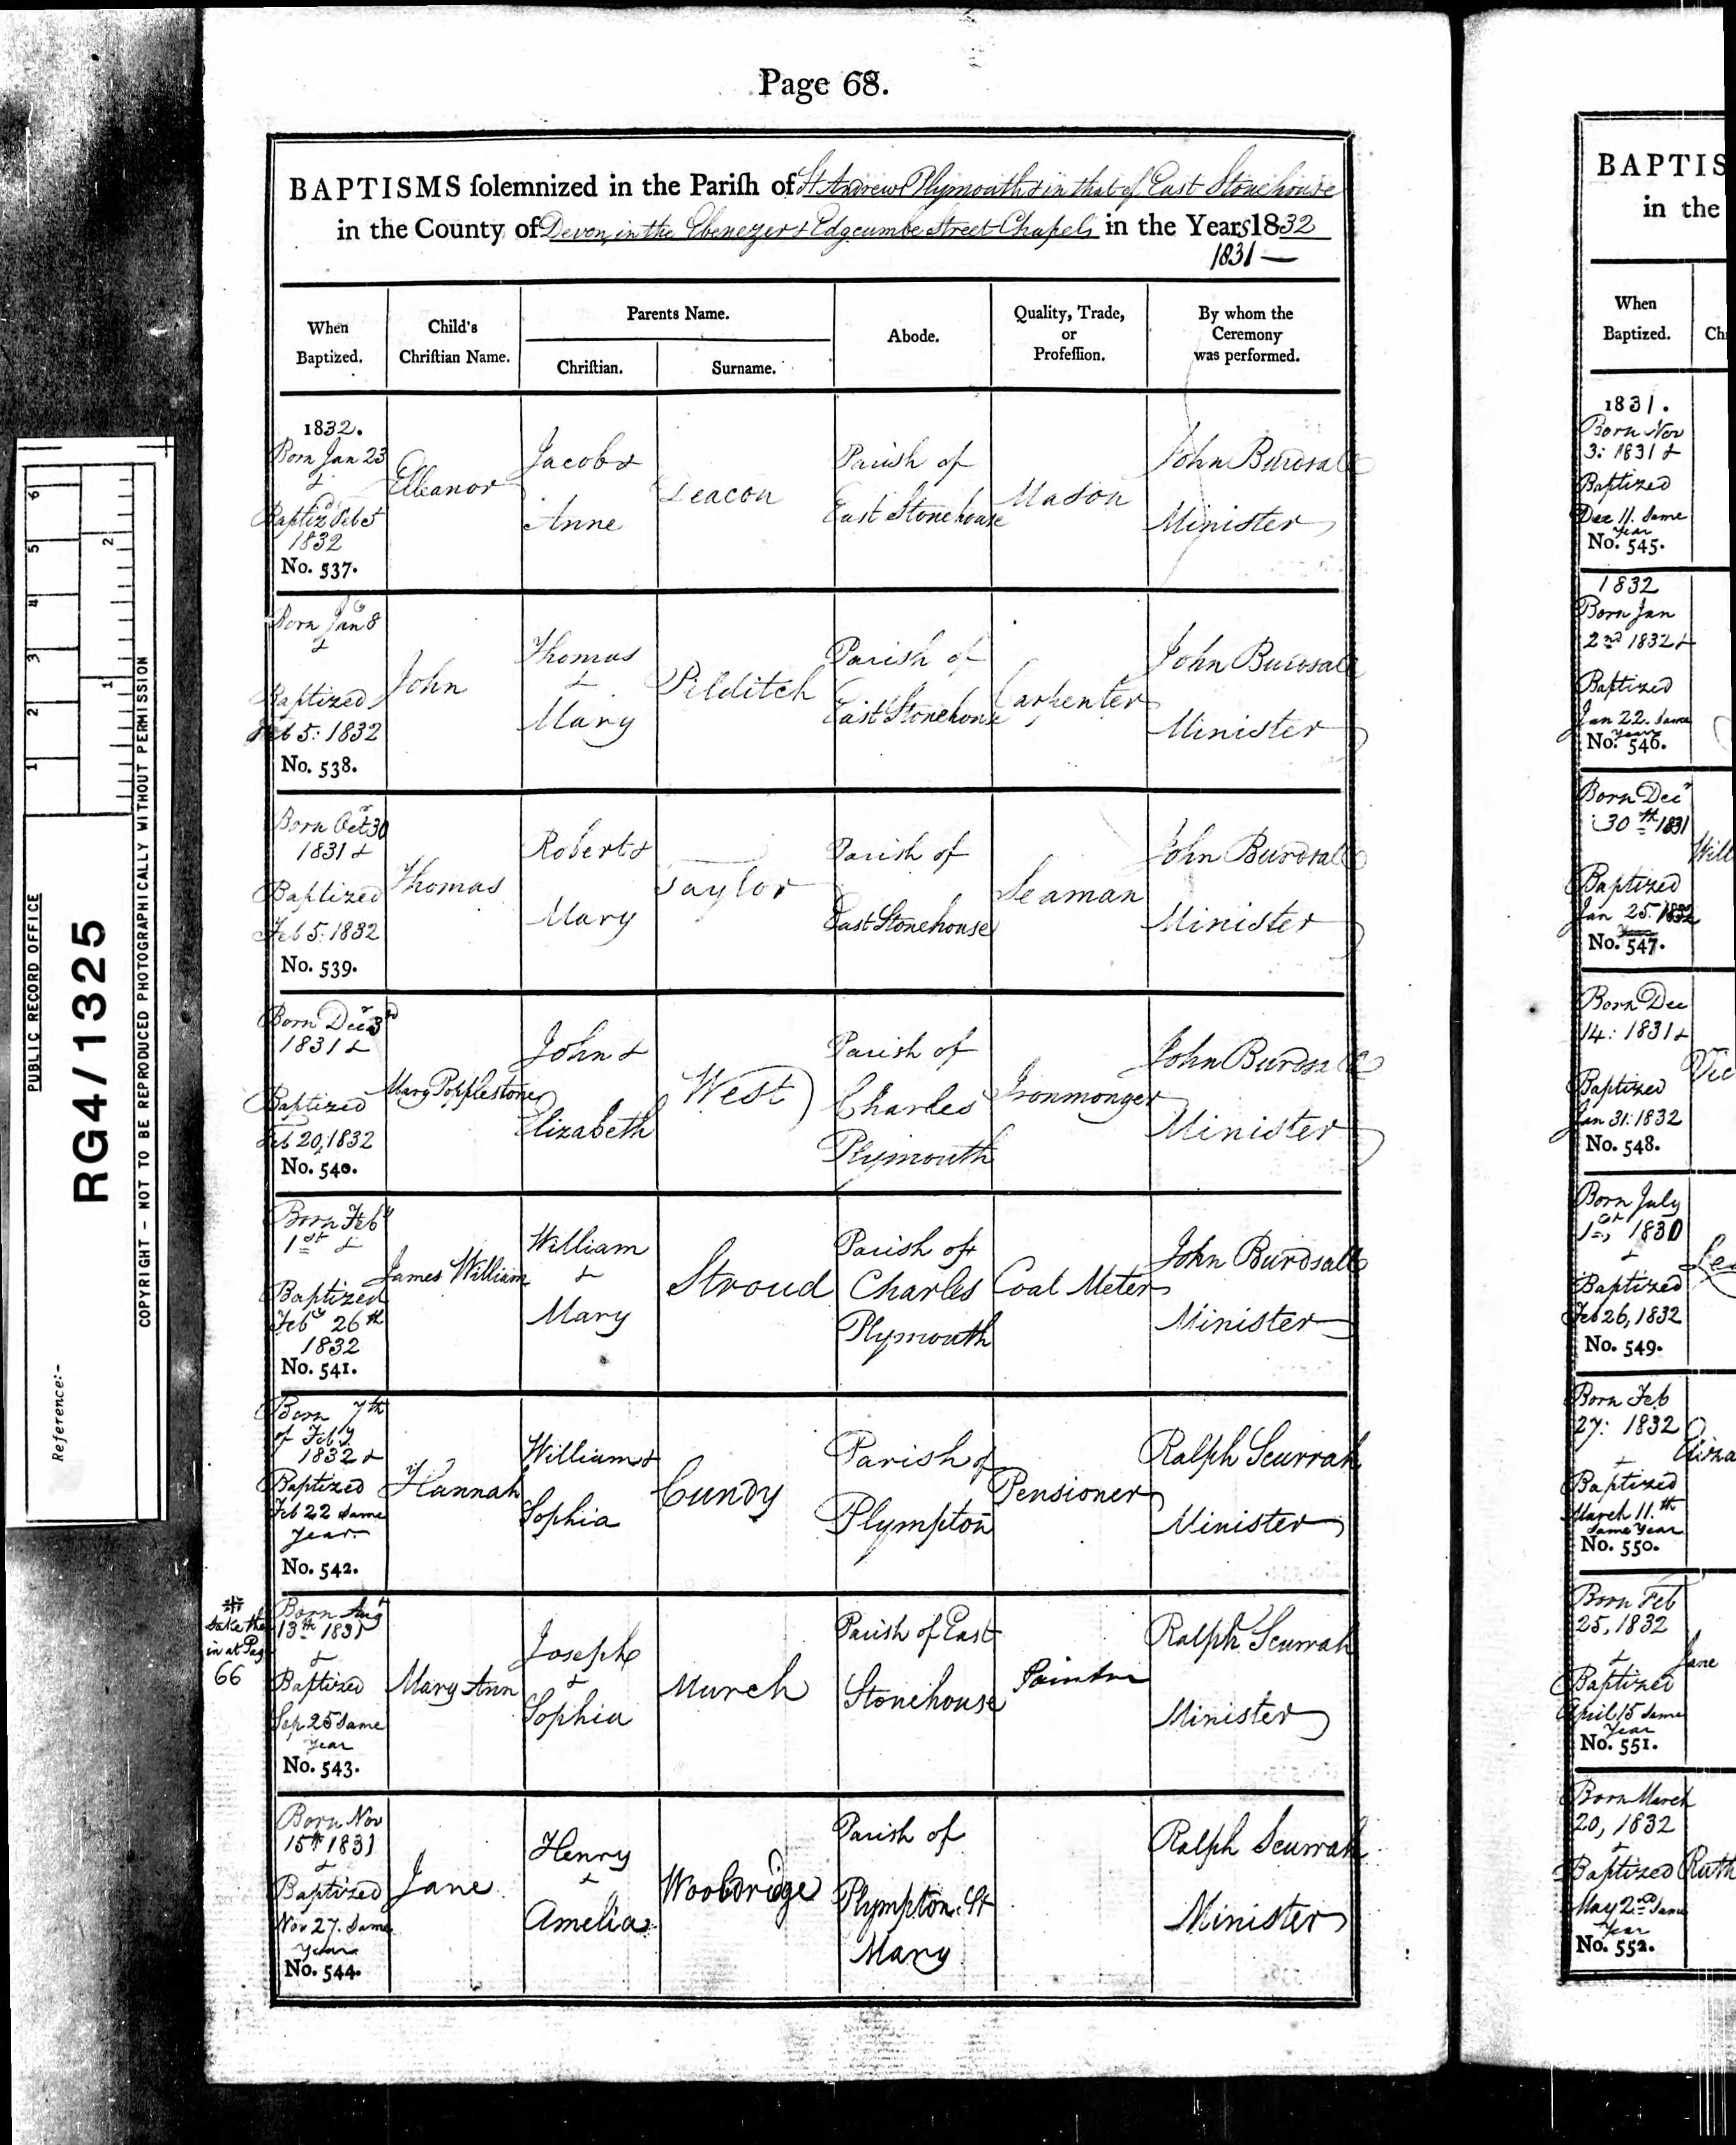 Page 68.
BAPTISMS solemnized in the Parish of St Andrew Plymouth & in that of East Stonehouse
in the County of Devon, in the Ebenezer & Edgcumbe Street Chapels in the Years 1832
1831 —
When
Baptized.
Child's
Christian Name.
Parents Name.
Christian.
Surname.
Abode.
Quality, Trade,
or
Profession.
By whom the
Ceremony
was performed.
1832.
Born Jan 23
&
Baptizd Feb 5
1832
No. 537.
Elleanor
Jacob &
Anne
Deacon
Parish of
East Stonehouse
Mason
John Burdsall
Minister
Born Jan 8
&
Baptized
Feb 5: 1832
No. 538.
John
Thomas
&
Mary
Pilditch
Parish of
East Stonehouse
Carpenter
John Burdsall
Minister
Born Octr 30
1831 &
Baptized
Feb 5: 1832
No. 539.
Thomas
Robert &
Mary
Taylor
Parish of
East Stonehouse
Seaman
John Burdsall
Minister
Born Decr 3rd
1831 &
Baptized
Feb 20, 1832
No. 540.
Mary Popplestone
John &
Elizabeth
West
Parish of
Charles
Plymouth
Ironmonger
John Burdsall
Minister
Born Feby
1st &
Baptized
Feby 26th
1832
No. 541.
James William
William
&
Mary
Stroud
Parish of
Charles
Plymouth
Coal Meter
John Burdsall
Minister
Born 7th
of Feby
1832 &
Baptized
Feb 22 Same
Year
No. 542.
Hannah
William &
Sophia
Cundy
Parish of
Plympton
Pensioner
Ralph Scurrah
Minister
take the
in at Pag
66
Born Augt
13th 1831
&
Baptized
Sep 25 Same
Year
No. 543.
Mary Ann
Joseph
&
Sophia
Murch
Parish of East
Stonehouse
Painter
Ralph Scurrah
Minister
Born Nov
15th 1831
&
Baptized
Nov 27. Same
Year
No. 544.
Jane
Henry
&
Amelia
Wooldridge
Parish of
Plympton St
Mary
Ralph Scurrah
Minister
BAPTIS
in the
When
Baptized.
Ch
1831.
Born Nov
3: 1831 &
Baptized
Dec 11. Same
Year
No. 545.
1832
Born Jan
2nd 1832 &
Baptized
Jan 22. Same
Year
No. 546.
Born Decr
30th 1831
Baptized
Jan 25. 1832
Year
No. 547.
Will
Born Dec
14: 1831 &
Baptized
Jan 31: 1832
No. 548.
Vic
Born July
1st, 1830
&
Baptized
Feb 26, 1832
No. 549.
Born Feb
27: 1832
&
Baptized
March 11th
Same Year
No. 550.
Eliza
Born Feb
25, 1832
&
Baptized
April 15 Same
Year
No. 551.
Jane
Born March
20, 1832
&
Baptized
May 2nd Same
Year
No. 552.
Ruth
6
5
4
3
2
1
2
1
PUBLIC RECORD OFFICE
RG4/1325
Reference:-
COPYRIGHT - NOT TO BE REPRODUCED PHOTOGRAPHICALLY WITHOUT PERMISSION